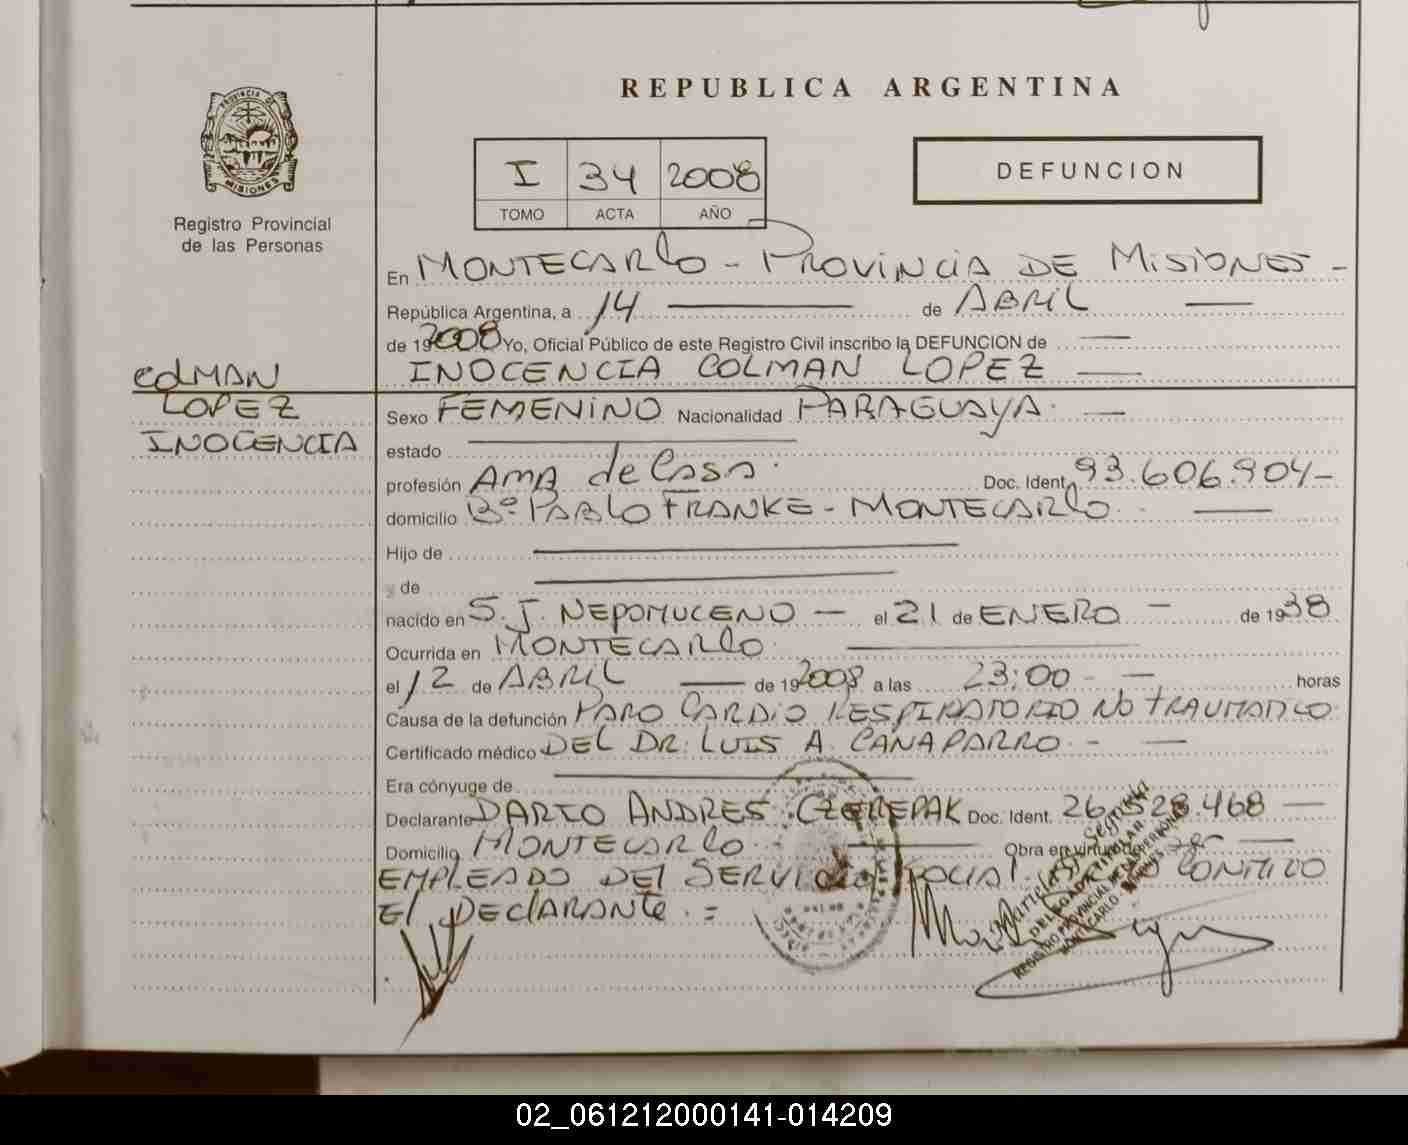 REPUBLICA ARGENTINA
PROVINCIA DE
MISIONES
Registro Provincial
de las Personas
I 34 2008
TOMO ACTA AÑO
DEFUNCION
En MONTECARLO - PROVINCIA DE MISIONES -
República Argentina, a 14 de ABRIL
de 192008 Yo, Oficial Público de este Registro Civil inscribo la DEFUNCION de
INOCENCIA COLMAN LOPEZ
COLMAN
LOPEZ
INOCENCIA
Sexo FEMENINO Nacionalidad PARAGUAYA.
estado
profesión AMA de CASA. Doc. Ident. 93.606.904-
domicilio Bº PABLO FRANKE - MONTECARLO.
Hijo de
y de
nacido en S.J. NEPOMUCENO - el 21 de ENERO - de 1938
Ocurrida en MONTECARLO.
el 12 de ABRIL de 192008 a las 23:00 - horas
Causa de la defunción PARO CARDIO RESPIRATORIO NO TRAUMATICO
Certificado médico DEL DR. LUIS A. CANAPARRO. -
Era cónyuge de
Declarante DARIO ANDRES CZEREPAK Doc. Ident. 26.528.468
Domicilio MONTECARLO. Obra en virtud de
EMPLEADO DEL SERVICIO SOCIAL.
EL DECLARANTE. =
DELEGADA TITULAR
REGISTRO PROVINCIAL DE LAS PERSONAS
MONTECARLO - MISIONES
02_061212000141-014209